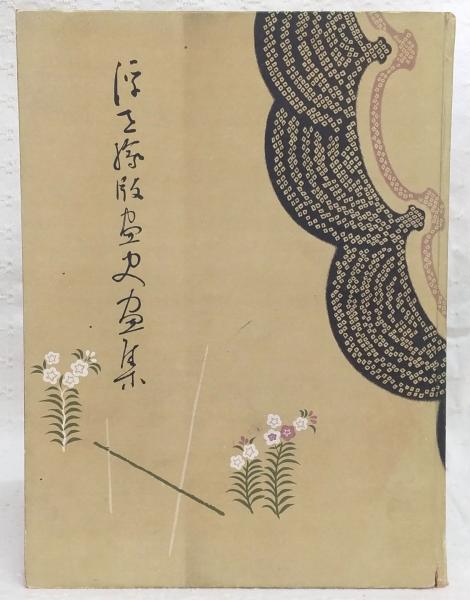 浮世絵版画史画集